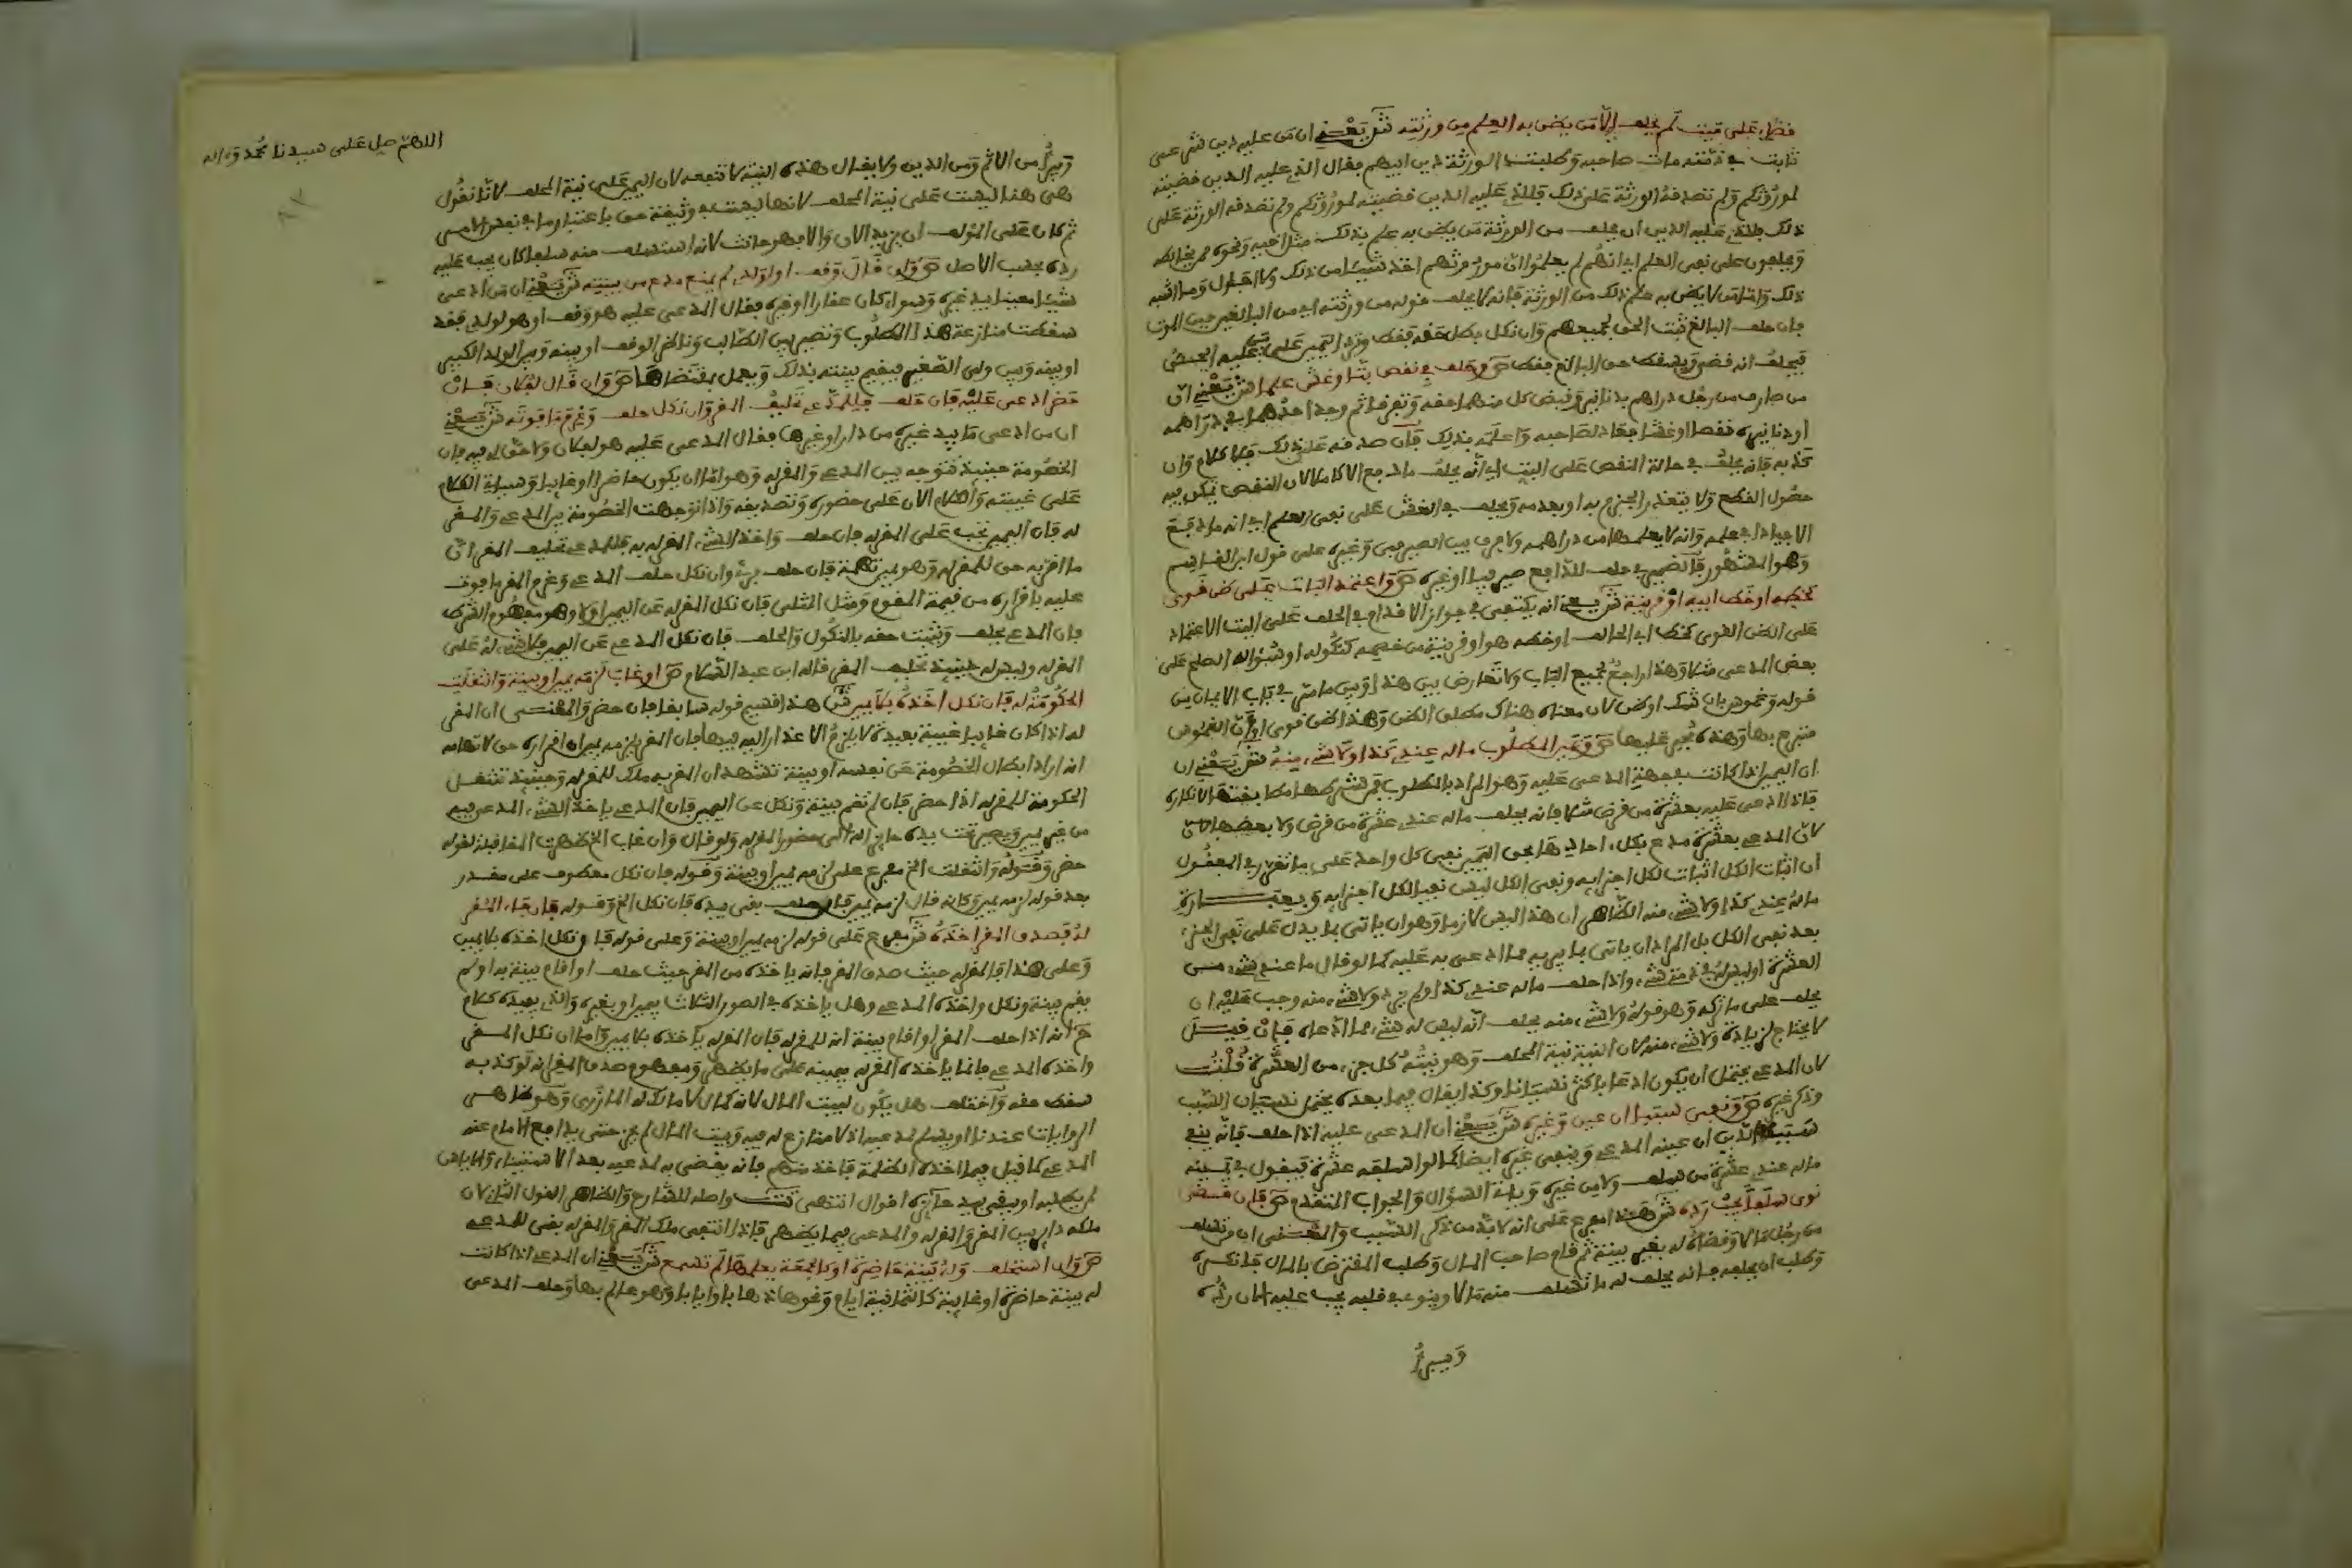 قضى على ميت لم يحلف إلا من يظن به العلم من ورثته ش يعني ان من عليه دين شرعي
ثابت في ذمته مات صاحبه وطلبت الورثة دين ابيهم فقال الذي عليه الدين قضيته
لمورثكم ولم تصدقه الورثة على ذلك فللذي عليه الدين قضيته لمورثكم ولم تصدقه الورثة على
ذلك فللذي عليه الدين ان يحلف من الورثة من يظن به علم بذلك مثل اخيه ونحوه ممن يخالطه
ويحلفون على نفي العلم اي انهم لم يعلموا ان مورثهم اخذ شيئا من ذلك ولا احتال وما اشبه
ذلك واما من لا يظن به علم ذلك من الورثة فانه لا يحلف قوله من ورثته اي من البالغين حين الموت
فان حلف البالغ ثبت الحق لجميعهم وان نكل بطل حقه فقط وترد اليمين على من عليه الحق
فيحلف انه قضى ويسقط حق البالغ فقط ص وحلف في نقص بتا وغش علما ش يعني ان
من صارف من رجل دراهم بدنانير وقبض كل منهما حقه وتفرقا ثم وجد احدهما في دراهمه
او دنانيره نقصا او غشا فجاء لصاحبه واعلمه بذلك فان صدقه على ذلك فلا كلام وان
كذبه فانه يحلف في حالة النقص على البت اي انه يحلف ما دفع الا كاملا لان النقص يمكن فيه
حصول القطع ولا يتعذر الجزم به او بعدمه ويحلف في الغش على نفي العلم اي انه ما دفع
الا جيادا في علمه وانه لا يعلمها من دراهمه ولا فرق بين الصيرفي وغيره على قول ابن القاسم
وهو المشهور فالضمير في حلف للدافع صيرفيا او غيره ص واعتمد البات على ظن قوي
كخطه او خط ابيه او قرينة ش يعني انه يكتفي في جواز الاقدام في الحلف على البت الاعتماد
على الظن القوي كخط ابي الحالف او خطه هو او قرينة من خصمه كنكوله او سؤاله الصلح على
بعض المدعى مثلا وهذا راجع لجميع الباب ولا تعارض بين هذا وبين ما مر في باب الايمان من
قوله وغموس بان شك او ظن لان معناه هناك مطلق الظن وهذا ظن قوي او ان الغموس
متبرع بها وهذه مجبر عليها ص ويمين المطلوب ما له عندي كذا ولا شيء منه ش يعني ان
ان اليمين اذا كانت في جهة المدعى عليه وهو المراد بالمطلوب فمن شرطها مطابقتها لانكاره
فاذا ادعى عليه بعشرة من قرض مثلا فانه يحلف ما له عندي عشرة من قرض ولا بعضها لان
لان المدعي بعشرة مدع بكل احادها فحق اليمين نفي كل واحد على ما تقرر في المعقول
ان اثبات الكل اثبات لكل اجزايه ونفي الكل ليس نفيا لكل اجزايه وبعبارة
ما له عندي كذا ولا شيء منه الظاهر ان هذا ليس لازما وهو ان ياتي بما يدل على نفي الجزء
بعد نفي الكل بل المراد ان ياتي بما يبريه مما ادعى به عليه كما لو قال ما عندي شيء من
العشرة او ليس له في ذمتي شيء واذا حلف ما له عندي كذا ولم يزد ولا شيء منه وجب عليه ان
يحلف على ما تركه وهو قوله ولا شيء منه يحلف انه ليس له شيء مما ادعاه فان قيل
لا يحتاج لزيادة ولا شيء منه لان النية نية المحلف وهو نيته كل جزء من العشرة قلت
لان المدعي يحتمل ان يكون ادعى باكثر نسيانا وكذا يقال فيما بعده يحتمل نسيان السبب
وذكر غيره ص ونفى سببا ان عين وغيره ش يعني ان المدعى عليه اذا حلف فانه ينفي
سبب الدين ان عينه المدعي وينفي غيره ايضا كما لو اسلفه عشرة فيقول في يمينه
ما له عندي عشرة من سلف ولا من غيره وياتي السؤال والجواب المتقدم ص فان قضى
نوى سلفا يجب رده ش هذا مفرع على انه لا بد من ذكر السبب والمعنى ان من تسلف
من رجل مالا وقضاه له بغير بينة ثم قام صاحب المال وطلب المقترض بالمال فانكره
وطلب ان يحلفه فانه يحلف له ما تسلف منه مالا وينوي في قلبه يجب عليه الان رده
ويبرئ
اللهم صل على سيدنا محمد وءاله
ويبرأ من الاثم ومن الدين ولا يقال هذه النية لا تنفعه لان اليمين على نية المحلف لانا نقول
هي هنا ليست على نية المحلف لانها ليست في وثيقة حق باعتبار ما في نفس الامر
ثم كان على المؤلف ان يزيد الان والا فهو حانث لانه استسلف منه سلفا كان يجب عليه
رده بحسب الاصل ص وان قال وقف او لولدي لم يمنع مدع من بينته ش يعني ان من ادعى
شيئا معينا بيد غيره وسواء كان عقارا او غيره فقال المدعى عليه هو وقف او هو لولدي فقد
سقطت منازعة هذا المطلوب وتصير بين الطالب وناظر الوقف او بينه وبين الولد الكبير
او بينه وبين ولي الصغير فيقيم بينته بذلك ويعمل بمقتضاها ص وان قال لفلان فان
حضر ادعي عليه فان حلف فللمدعي تحليف المقر وان نكل حلف وغرم ما فوته ش يعني
ان من ادعى ما بيد غيره من دار او غيرها فقال المدعى عليه هو لفلان ولا حق لي فيه فان
الخصومة حينئذ تتوجه بين المدعي والمقر له وهو اما ان يكون حاضرا او غايبا وسياتي الكلام
على غيبته والكلام الان على حضوره وتصديقه واذا توجهت الخصومة بين المدعي والمقر
له فان اليمين تجب على المقر له فان حلف واخذ الشيء المقر له به فللمدعي تحليف المقر ان
ما اقر به حق للمقر له وهو يمين تهمة فان حلف بريء وان نكل حلف المدعي وغرم المقر ما فوت
عليه باقراره من قيمة المقوم ومثل المثلي فان نكل المقر له عن اليمين اولا وهو مفهوم الشرط
فان المدعي يحلف ويثبت حقه بالنكول والحلف فان نكل المدعي عن اليمين فلا شيء له على
المقر له وليس له حينئذ تحليف المقر قاله ابن عبد السلام ص او غاب لزمه يمين او بينة وانتقلت
الحكومة له فان نكل اخذه بلا يمين ش هذا قسيم قوله سابقا فان حضر والمعنى ان المقر
له اذا كان غايبا غيبة بعيدة لا يلزم الاعذار اليه فيها فان المقر يلزمه يمين ان اقراره حق لاتهامه
انه اراد ابطال الخصومة عن نفسه او بينة تشهد ان المقر به ملك للمقر له وحينئذ تنتقل
الحكومة للمقر له اذا حضر فان لم تقم بينة ونكل عن اليمين فان المدعي ياخذ الشيء المدعى فيه
من غير يمين ويصير تحت يده حايزا له الى حضور المقر له ولو قال وان غاب الخ لظهرت المقابلة لقوله
حضر وقوله وانتقلت الخ مفرع على لزمه يمين او بينة وقوله فان نكل معطوف على مقدر
بعد قوله لزمه يمين وكانه قال لزمه يمين فان حلف بقي بيده فان نكل الخ وقوله فان جاء المقر
له فصدق المقر اخذه ش مفرع على قوله لزمه يمين او بينة وعلى قوله فان نكل اخذه بلا يمين
وعلى هذا فالمقر له حيث صدق المقر فانه ياخذه من المقر حيث حلف او اقام بينة به او لم
يقم بينة ونكل واخذه المدعي وهل ياخذه في الصور الثلاث بيمين او بغيره والذي يفيده كلام
ح انه اذا حلف المقر او اقام بينة انه للمقر له فان المقر له ياخذه بلا يمين واما ان نكل المقر
واخذه المدعي فانما ياخذه المقر له بيمينه على ما يظهر ومفهوم صدق المقر انه لو كذبه
سقط حقه واختلف هل يكون لبيت المال لانه كمال لا مالك له المازري وهو ظاهر
الروايات عندنا او يسلم لمدعيه اذ لا منازع له فيه وبيت المال لم يحز حتى يدافع الامام عنه
المدعي كما قيل فيما اخذه الظلمة فاخذ منهم فانه يقضى به لمدعيه بعد الاستيناء والاياس
لمن يطلبه او يبقى بيد حايزه اقوال انتهى تت واصله للشارح والظاهر القول الثاني لان
ملكه داير بين المقر والمقر له والمدعي فيما يظهر فاذا انتفى ملك المقر والمقر له بقي للمدعي
ص وان استحلف وله بينة حاضرة او كالجمعة يعلمها لم تسمع ش يعني ان المدعي اذا كانت
له بينة حاضرة او غايبة كالثمانية ايام ونحوها ذهابا وايابا وهو عالم بها وحلف المدعى